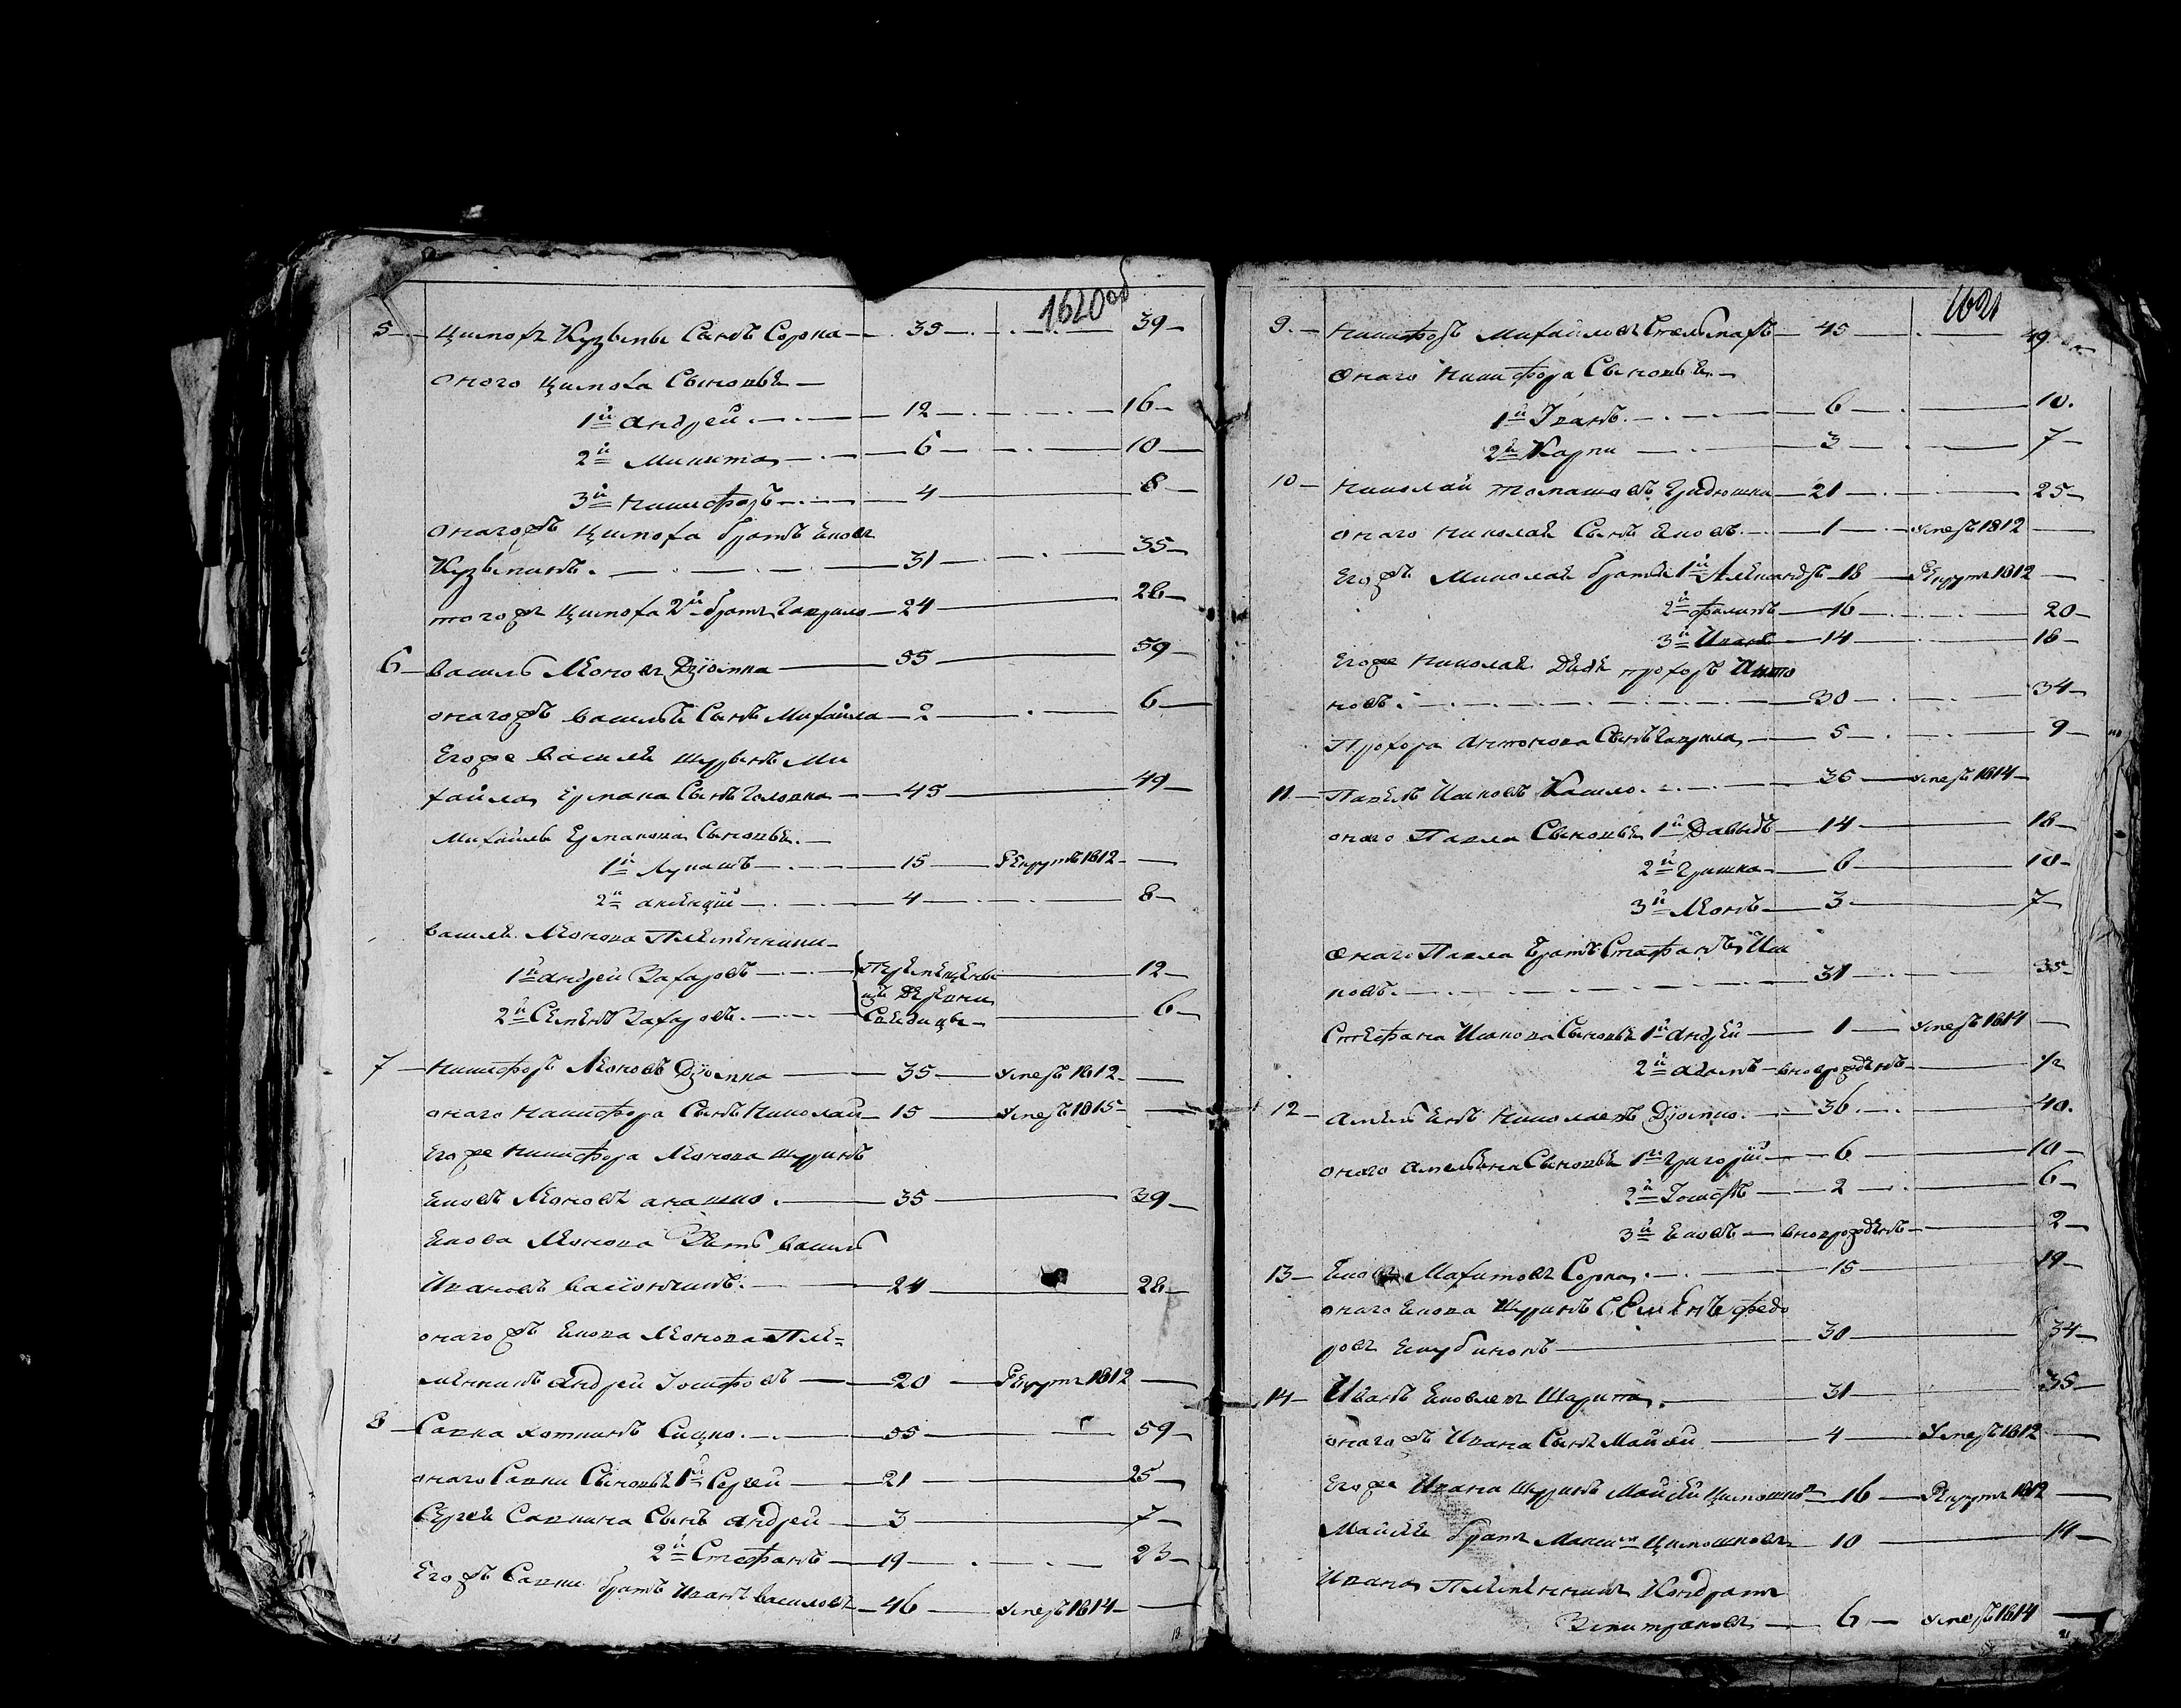 1620об
5 Цимохъ Кузьминъ Сынъ Сорока 35 39
Оного Цимоха Сыновья
1й Андрей 12 16
2й Микита 6 10
3й Никифоръ 4 8
Онагожъ Цимоха братъ Яковъ
Кузьминъ 31 35
тогожъ Цимоха 2й братъ Гаврило 24 28
6 Василь Леоновъ Дзюпка 55 59
онагожъ Василья Сынъ Михайла 2 6
Егоже Василя шурынъ Ми
хайла Ермака Сынъ Головка 45 49
Михайлы Ермакова Сыновья
1й Лукашъ 15 Рекрутъ 1812
2й Алексій 4 8
Василя Леонова Племянники
1й Андрей Захаровъ Перемещены 12
изъ деревни
2й Семенъ Захаровъ 6
7 Никифоръ Леоновъ Дзюпка 35 умеръ 1812
онаго Никифора Сынъ Николай 15 умеръ 1815
Егоже Никифора Леонова шуринъ
Яковъ Леоновъ 35 39
Якова Леонова Зять Василь
Ивановъ 24 28
онагожъ Якова Леонова Пле=
мянникъ Андрей Іосифовъ 20 Рекрутъ 1812
8 Савка 55 59
онаго Савки Сыновья 1й Сергей 21 25
Сергея Савкина Сынъ Андрей 3 7
2й Стефанъ 19 23
Егожъ Савки братъ Иванъ Василовъ 46 умеръ 1814
1621
9. Никифоръ Михайловъ Стельмахъ 45 49
Онаго Никифора Сыновья
1й Іванъ 6 10.
2й Карпи 3 7
10 Николай Томашовъ 21 25
онаго Николая Сынъ Яковъ 1 умеръ 1812
Егожъ Николая братья 1й Александръ 18 Рекрутъ 1812
2й Филипъ 16 20
3й Иванъ 14 18
Егоже Николая Дядя Прохоръ Анто
новъ 30 34
Прохора Антонова Сынъ Гаврила 5 9
11 Павелъ Ивановъ Касило 36 умеръ 1814
онаго Павла Сыновья 1й Давыдъ 14 18
2й Гришка 6 10
3й Леонъ 3 7
Онаго Павла Братъ Стефанъ Ива
новъ 31 35
Стефана Иванова Сыновья 1й Андрей 1 умеръ 1814
2й Адамъ вноврожденъ ½
12 Амельянъ Николаевъ Дзюпка 36 40.
онаго Амельяна Сыновья 1й Григорій 6 10
2й Іосифъ 2 6
3й Яковъ вноврожденъ 2
13 Яковъ Микитовъ Сорока 15 19
онаго Якова Шуринъ Семенъ Федо
ровъ 30 34
14 Иванъ Яковлевъ 31 35
онагожъ Ивана Сынъ Мойсей 4 умеръ 1812
Егоже Ивана Шуринъ Мойсей Цимошковъ 16 Рекрутъ 1812
Мойсея братъ Максимъ Цимошковъ 10 14
Ивана Племянникъ Кондратъ
6 умеръ 1814